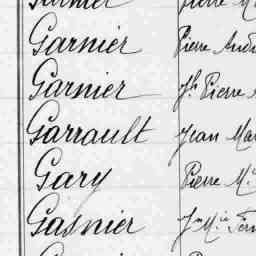 Garnier Pierre
Garnier Pierre And
Garnier Jh Pierre
Garrault Jean Mar
Gary Pierre M.
Gasnier Jn M.ie